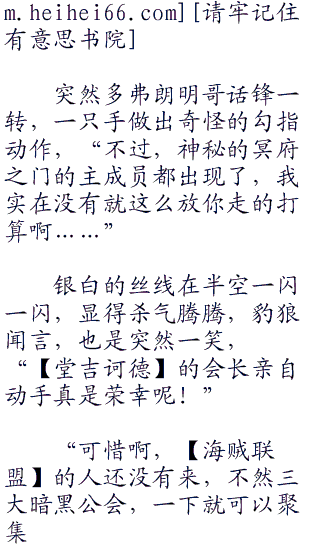 m.heihei66.com][请牢记住
有意思书院]
突然多弗朗明哥话锋一
转，一只手做出奇怪的勾指
动作，“不过，神秘的冥府
之门的主成员都出现了，我
实在没有就这么放你走的打
算啊……”
银白的丝线在半空一闪
一闪，显得杀气腾腾，豹狼
闻言，也是突然一笑，
“【堂吉诃德】的会长亲自
动手真是荣幸呢！”
“可惜啊，【海贼联
盟】的人还没有来，不然三
大暗黑公会，一下就可以聚
集